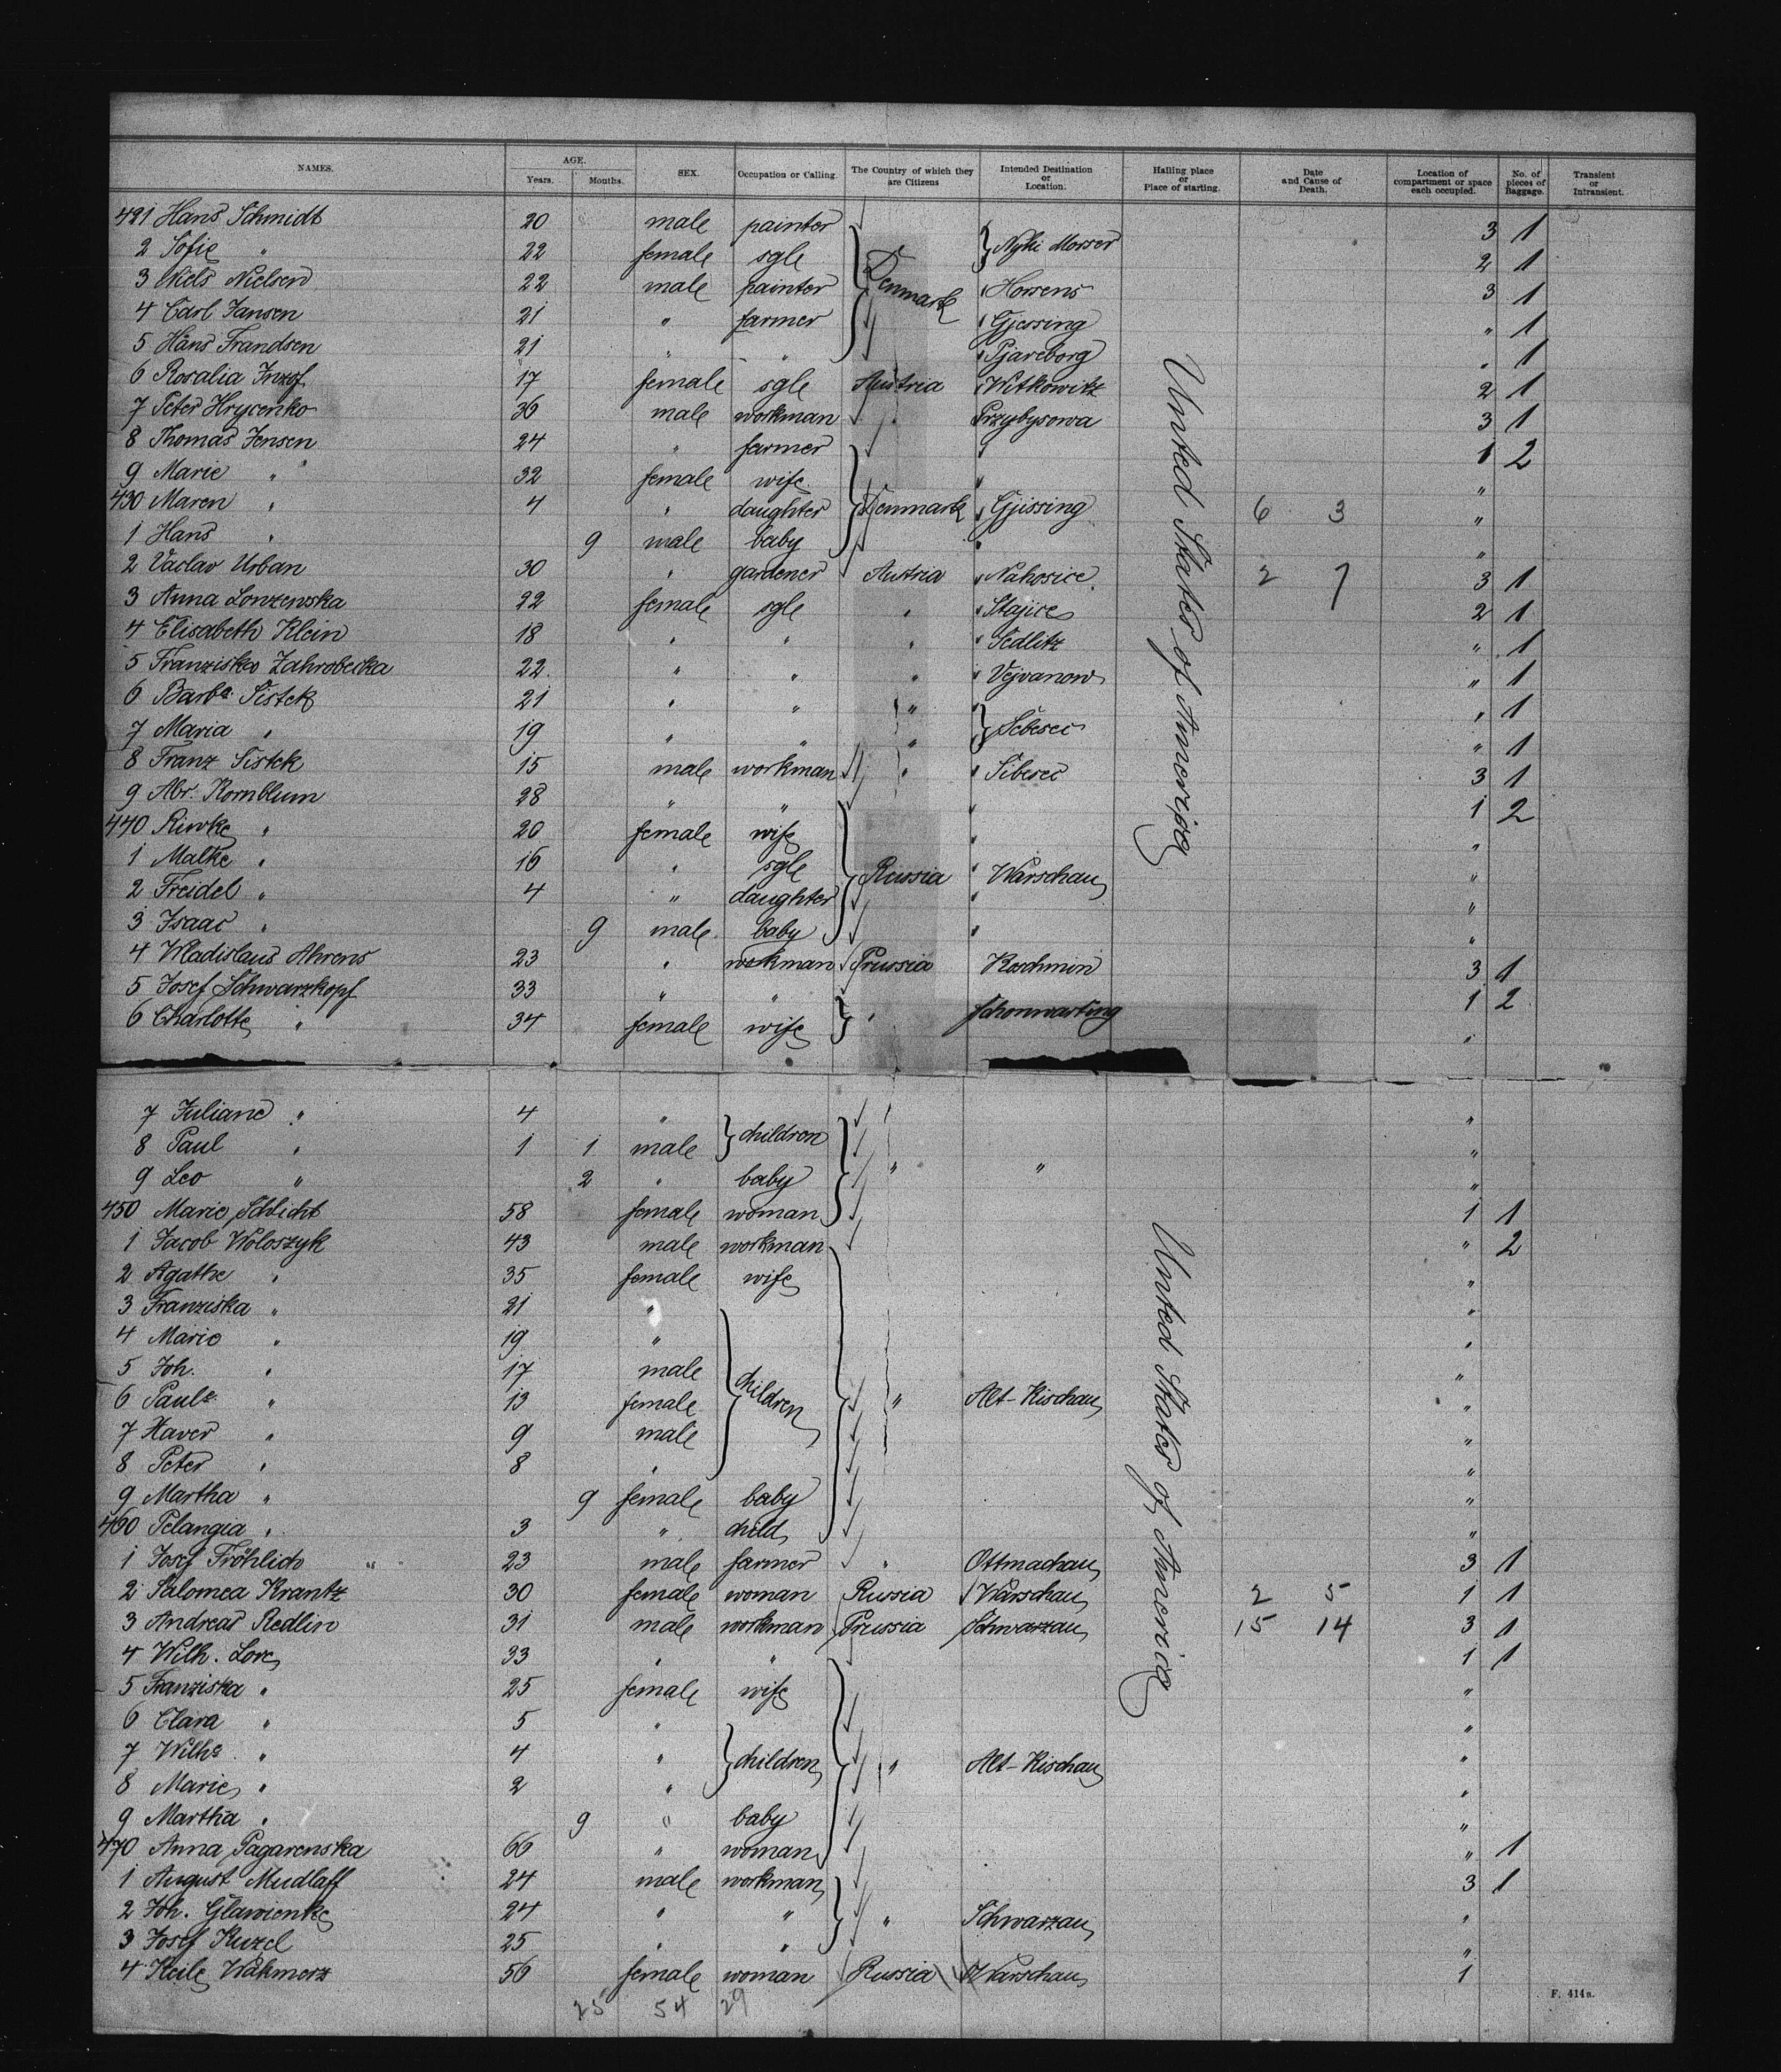 NAMES. AGE. Years. Months. SEX. Occupation or Calling. The Country of which they are Citizens Intended Destination or Location. Hailing place or Place of starting. Date and Cause of Death. Location of compartment or space each occupied. No. of pieces of Baggage. Transient or Intransient.
421 Hans Schmidt 20 male painter 3 1
2 Sofie " 22 female sgle 2 1
3 Niels Nielsen 22 male painter Denmark Horsens 3 1
4 Carl Jansen 21 " farmer Gjessing " 1
5 Hans Frandsen 21 " " Pjareborg " 1
6 Rosalia 17 female sgle Austria Witkowitz 2 1
7 Peter Hrycenko 36 male workman " Przybysowa 3 1
8 Thomas Jensen 24 " farmer 1 2
9 Marie " 32 female wife "
430 Maren " 4 " daughter Denmark Gjissing 6 3 "
1 Hans " 9 male baby "
2 Vaclav Urban 30 " gardener Austria Nahosice 2 7 3 1
3 Anna Lonzewska 22 female sgle " Stajice 2 1
4 Elisabeth Klein 18 " " " Sedlitz " 1
5 Franziska Zahrobecka 22 " " " Vejvanow " 1
6 Barba. Sistek 21 " " " " 1
7 Maria " 19 " " " Sebesec " 1
8 Franz Sistek 15 male workman " Sibesec 3 1
9 Abr. Kornblum 28 " " 1 2
440 Riwke " 20 female wife "
1 Malke " 16 " sgle Russia Warschau "
2 Freidel " 4 " daughter "
3 Isaac " 9 male baby "
4 Wladislaus Ahrens 23 " workman Prussia Koschmin 3 1
5 Josef Schwarzkopf 33 " " 1 2
6 Charlotte " 34 female wife " Schonwarting "
United States of America
7 Juliane " 4 " children "
8 Paul " 1 1 male "
9 Leo " 2 " baby " " "
450 Marie Schlicht 58 female woman 1 1
1 Jacob Woloszyk 43 male workman " 2
2 Agathe " 35 female wife "
3 Franziska " 21 " "
4 Marie " 19 " "
5 Joh. " 17 male "
6 Paule " 13 female children " Alt-Kischau "
7 Xaver " 9 male "
8 Peter " 8 " "
9 Martha " 9 female baby "
460 Pelangia " 3 " child "
1 Josef Fröhlich " 23 male farmer " Ottmachau 3 1
2 Salomea Krantz 30 female woman Russia Warschau 2 5 1 1
3 Andreas Redlin 31 male workman Prussia Schwarzau 15 14 3 1
4 Wilh. Lore 33 " " 1 1
5 Franziska " 25 female wife "
6 Clara " 5 " "
7 Wilhe. " 4 " children " Alt-Kischau "
8 Marie " 2 " "
9 Martha " 9 " baby "
470 Anna Pagarenska 66 " woman " 1
1 August Mudlaff 24 male workman 3 1
2 Joh. Glawienke 24 " " " Schwarzau "
3 Josef Kuzel 25 " " "
4 Keile Wakmerz 56 female woman Russia Warschau 1
United States of America
25 54 29
F. 414a.